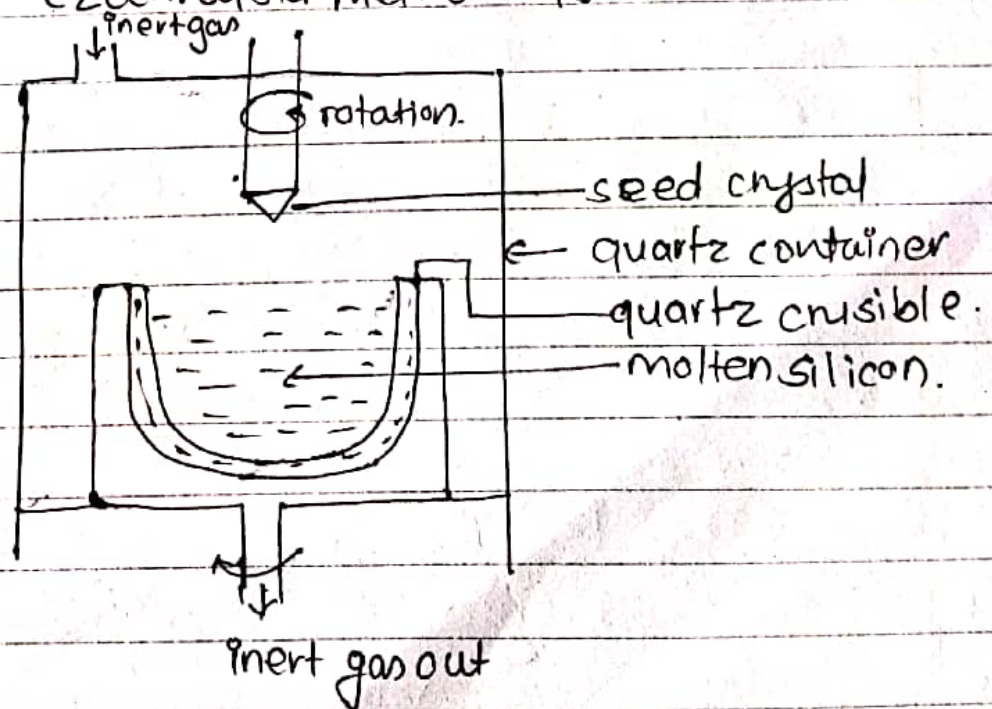 inert gas
rotation.
seed crystal
quartz container
quartz crusible.
molten silicon.
inert gas out